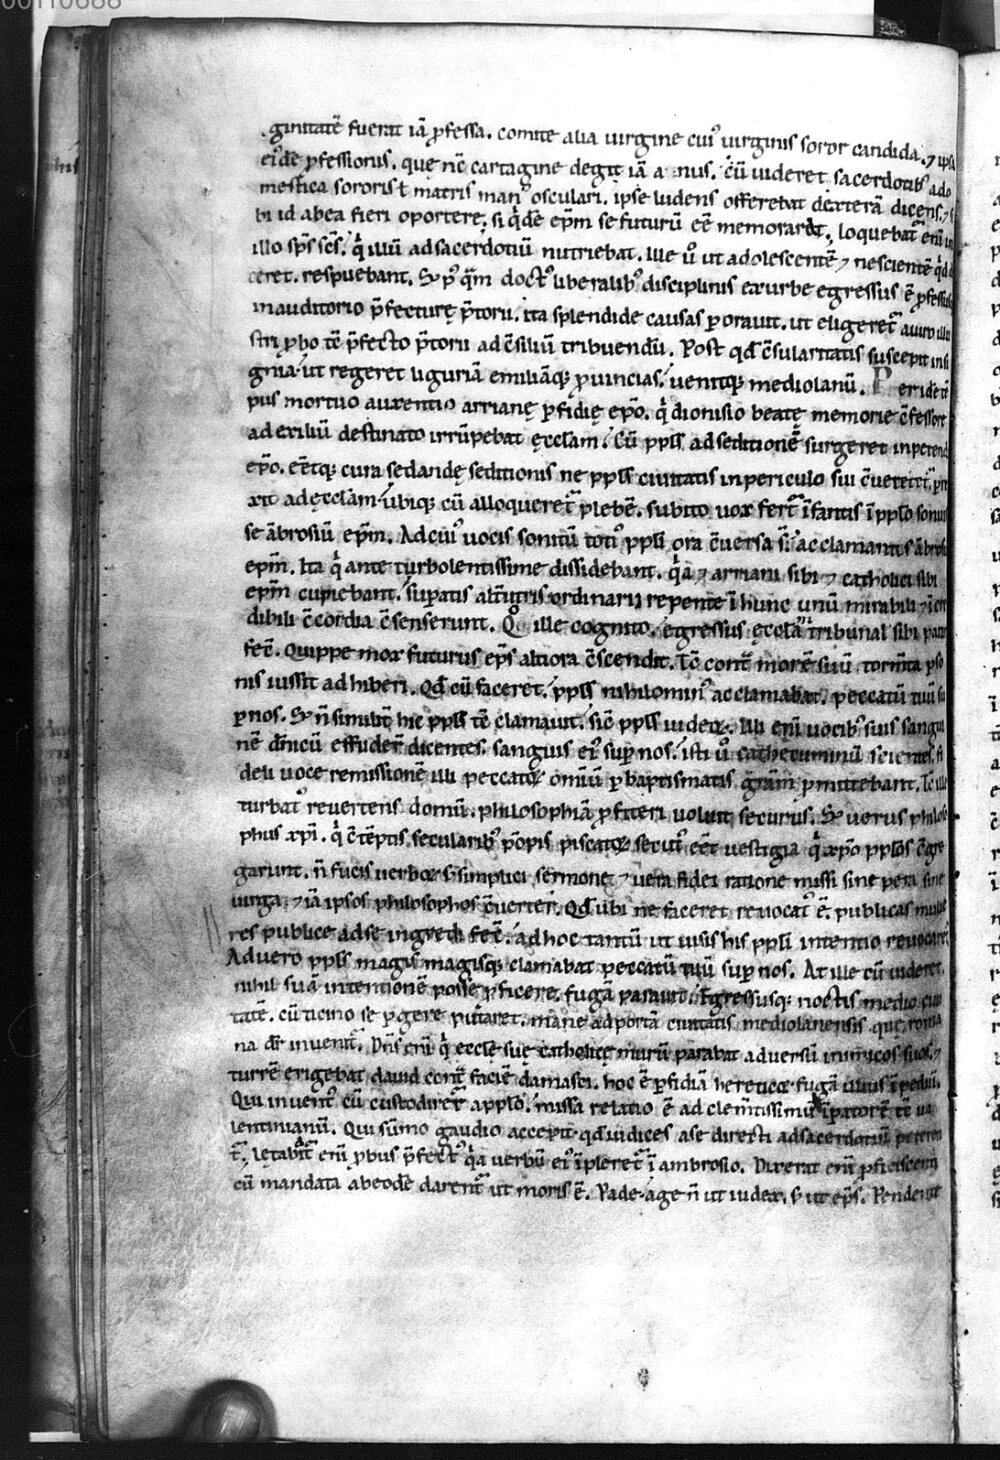 00110688
ginitatē fuerat iā ꝓfessa. comite alia uirgine cui᷒ uirginis soror candida. ⁊ ipsa
ei᷒dē ꝓfessionis. quę nc̄ cartagine degit iā anus. cū uideret sacerdotib᷒ a do
mestica sororis ł matris man᷒ osculari. ipse ludens offerebat dexterā dicens. ⁊ s
bi id ab ea fieri oportere. si qͥdē ep̄m se futurū eē memorar&. Loquebat᷑ eni in
illo sp̄s sc̄s. qͥ illū ad sacerdotiū nutriebat. Ille u᷒ ut adolescentē ⁊ nescientē qͥd d
ceret. respuebant. S; p᷒ qͣm doct᷒ liberalib᷒ disciplinis ex urbe egressus ē ꝓfessus
in auditorio p̄fecturę p̄torii. ita splendide causas ꝑorauit. ut eligeret᷑ a uiro illu
stri ꝓbo tē p̄fecto p̄torii ad c̄siliū tribuendū. Post qd̄ c̄sularitatis suscepit insi
gnia. ut regeret liguriā emiliāq; ꝓuincias. uenitq; mediolanū. Per idē tē
pus mortuo auxentio arrianę ꝑfidię ep̄o. qͥ dionisio beatę memorie c̄fessore
ad exiliū destinato irrūpebat ęcclam. Cū ppl̄s ad seditionē surgeret in petend
ep̄o. eētq; cura sedandę seditionis ne ppl̄s ciuitatis in periculo sui c̄ueteret᷑. ꝑre
xit ad ęcclam. ubiq; cū alloqueret᷑ plebē. subito uox fert᷑ īfantis ī pplo sonuis
se ābrosiū ep̄m. Ad cui᷒ uocis sonitū tot᷒ ppl̄i ora c̄uersa st̄. acclamantis ābrosiū
ep̄m. Ita qͥ ante turbolentissime dissidebant. qͥa ⁊ arriani sibi ⁊ catholici sibi
ep̄m cupiebant. supatis alt̄utris ordinarii repente ī hunc unū mirabili ⁊ īcre
dibili c̄cordia c̄senserunt. Qͦ ille cognito. egressus ęcclā tribunal sibi para
fec̄. Quippe mox futurus ep̄s altiora c̄scendit. Tc̄ cont̄ morē suū torm̄ta pso
nis iussit adhiberi. Qd̄ cū faceret. ppl̄s nihilomin᷒ acclamabat. peccatū tuū su
ꝑ nos. S; n̄ similit̄ hic ppl̄s tē clamauit. sic̄ ppl̄s iudeoꝝ. Illi eni uocib᷒ suis sangui
nē dn̄icū effuder̄ dicentes. sanguis ei᷒ suꝑ nos. isti u᷒ cathecuminū scientes. fi
deli uoce remissionē illi peccatoꝝ omiū ꝑ baptismatis grām ꝓmittebant. Tc̄ ille
turbat᷒ reuertens domū. philosophiā ꝓfiteri uoluit securus. S; uerus philoso
phus xp̄i. qͥ c̄tēptis secularib᷒ pōpis piscatoꝝ secut᷒ eēt uestigia qͥ xp̄o pplos c̄gre
garunt. n̄ fucis uerboꝝ s; simplici sermone ⁊ uera fidei ratione missi sine pera sine
uirga. ⁊ iā ipsos philosophos c̄uerter̄. Qd̄ ubi ne faceret reuocat᷒ ē. publicas mulie
res publice ad se ingredi fec̄. ad hoc tantū ut uisis his ppl̄i intentio reuocaret᷑.
Ad uero ppl̄s magis magisq; clamabat peccatū tuū suꝑ nos. At ille cū uideret
nihil suā intentionē posse ꝓficere. fugā parauit. Egressusq; noctis medio ciui
tatē. cū ticino se ꝑgere putaret. mane ad portā ciuitatis mediolanensis quę roma
na dr̄ inuenit᷑. Dn̄s eni qͥ ecclē suę catholicę murū parabat aduersū inimicos suos. ⁊
turrē erigebat dauid cont̄ faciē damasci. hoc ē ꝑfidiā hereticoꝝ. fugā illius īpediit.
Qui inuent᷒ cū custodiret᷑ a pplo. missa relatio ē ad clem̄tissimū īpatorē tē ua
lentinianū. Qui sūmo gaudio accepit. qd̄ iudices a se directi ad sacerdotiū peteren
t᷑. lętabat᷑ eni ꝓbus p̄fect᷒ qͥa uerbū ei᷒ īpleret᷑ ī ambrosio. Dixerat eni ꝓficiscenti
cū mandata ab eodē darent᷑ ut moris ē. Vade. age n̄ ut iudex. s; ut ep̄s. Pendente